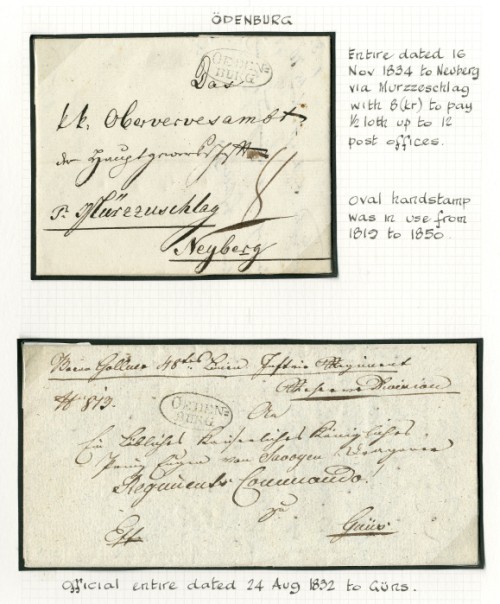 ÖDENBURG
OEDEN=
BERG
Das
kk. Oberverwesambt
der Hauptgewerkschft
pr. Mürzzuschlag
8
Neyberg
Entire dated 16
Nov 1834 to Neuberg
via Murzzeschlag
with 8(kr) to pay
½ loth up to 12
post offices.
Oval handstamp
was in use from
1819 to 1850.
48tes Linien Inftrie Regiment
No 813.
OEDEN=
BERG
An
Ein Löbliches Kaiserliches Königliches
Prinz Eugen von Savoyen Dragoner
Regiments Commando.
zu
Güns
Official entire dated 24 Aug 1832 to Güns.